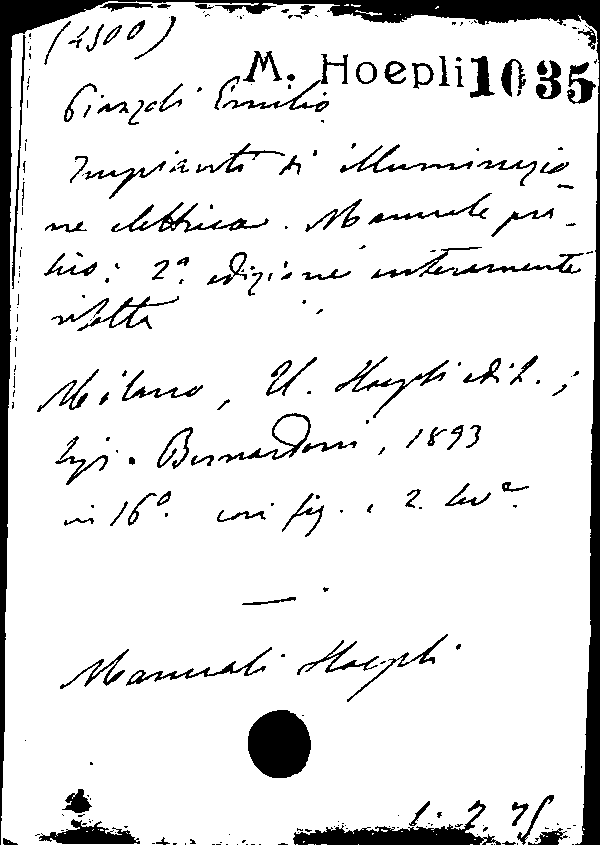 (4500)
M. Hoepli 1035
Piazzoli Emilio
Impianti di illuminazio
ne elettrica. Manuale pra-
tico: 2ª edizione interamente
rifatta
Milano, U. Hoepli edit.;
tip. Bernardoni, 1893
in 16º. con fig. e 2. tavª.
Manuali Hoepli
1. 7. 75